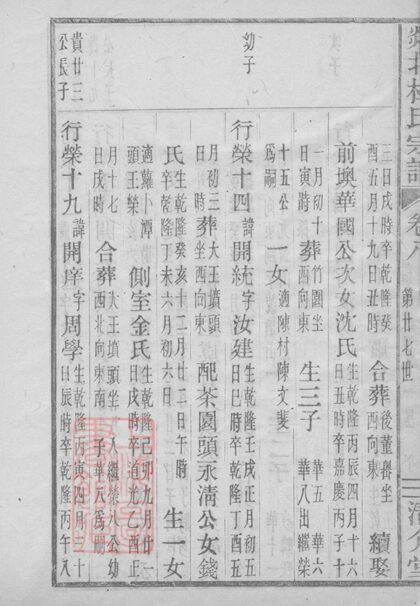 杜氏宗譜 卷八 第廿七世
三日戌時卒乾隆辛
酉五月十九日丑時 合葬 後董磡坐西向東 續娶
前墺華國公次女沈氏 生乾隆丙辰四月十六日丑時卒嘉慶丙子十
一月初十日寅時 葬 竹園坐西向東 生三子 華五 華六 華八出繼榮
十五公爲嗣 一女 適陳村陳文斐
幼子
行榮十四 諱 開統 字 汝建 生乾隆壬戌正月初五日巳時卒乾隆丁酉五
月初三日酉時 葬 大王墳頭坐西向東 配茶園頭永清公女錢
氏 生乾隆癸亥十二月廿二日午時卒乾隆丁未六月初六日 生一女
適蘿卜潭頭王榮 側室金氏 生乾隆己卯九月廿一日戌時卒道光乙酉正
月十七日戌時 合葬 大王墳頭坐西北向東南 繼榮八公子華八爲嗣
貴廿三公長子
行榮十九 諱 開庠 字 周學 生乾隆丙寅四月三十日辰時卒乾隆丙午八